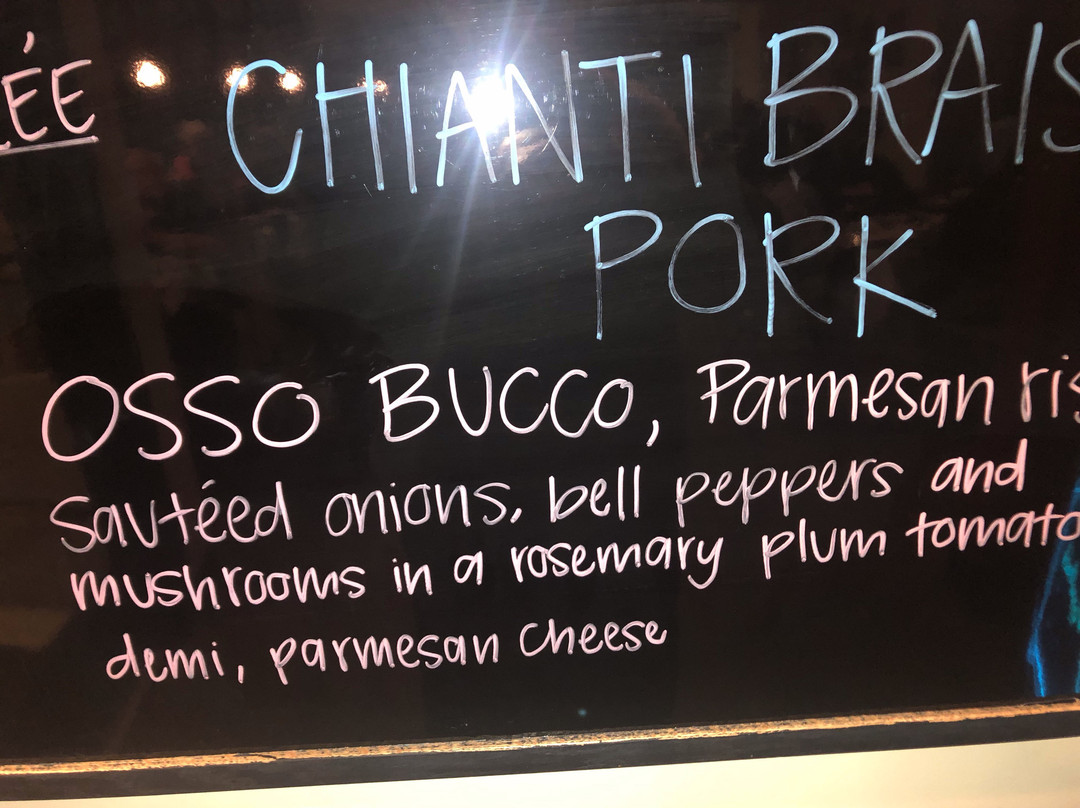 ÉE
CHIANTI BRAIS
PORK
OSSO BUCCO, Parmesan ris
Sautéed onions, bell peppers and
mushrooms in a rosemary plum tomato
demi, parmesan cheese